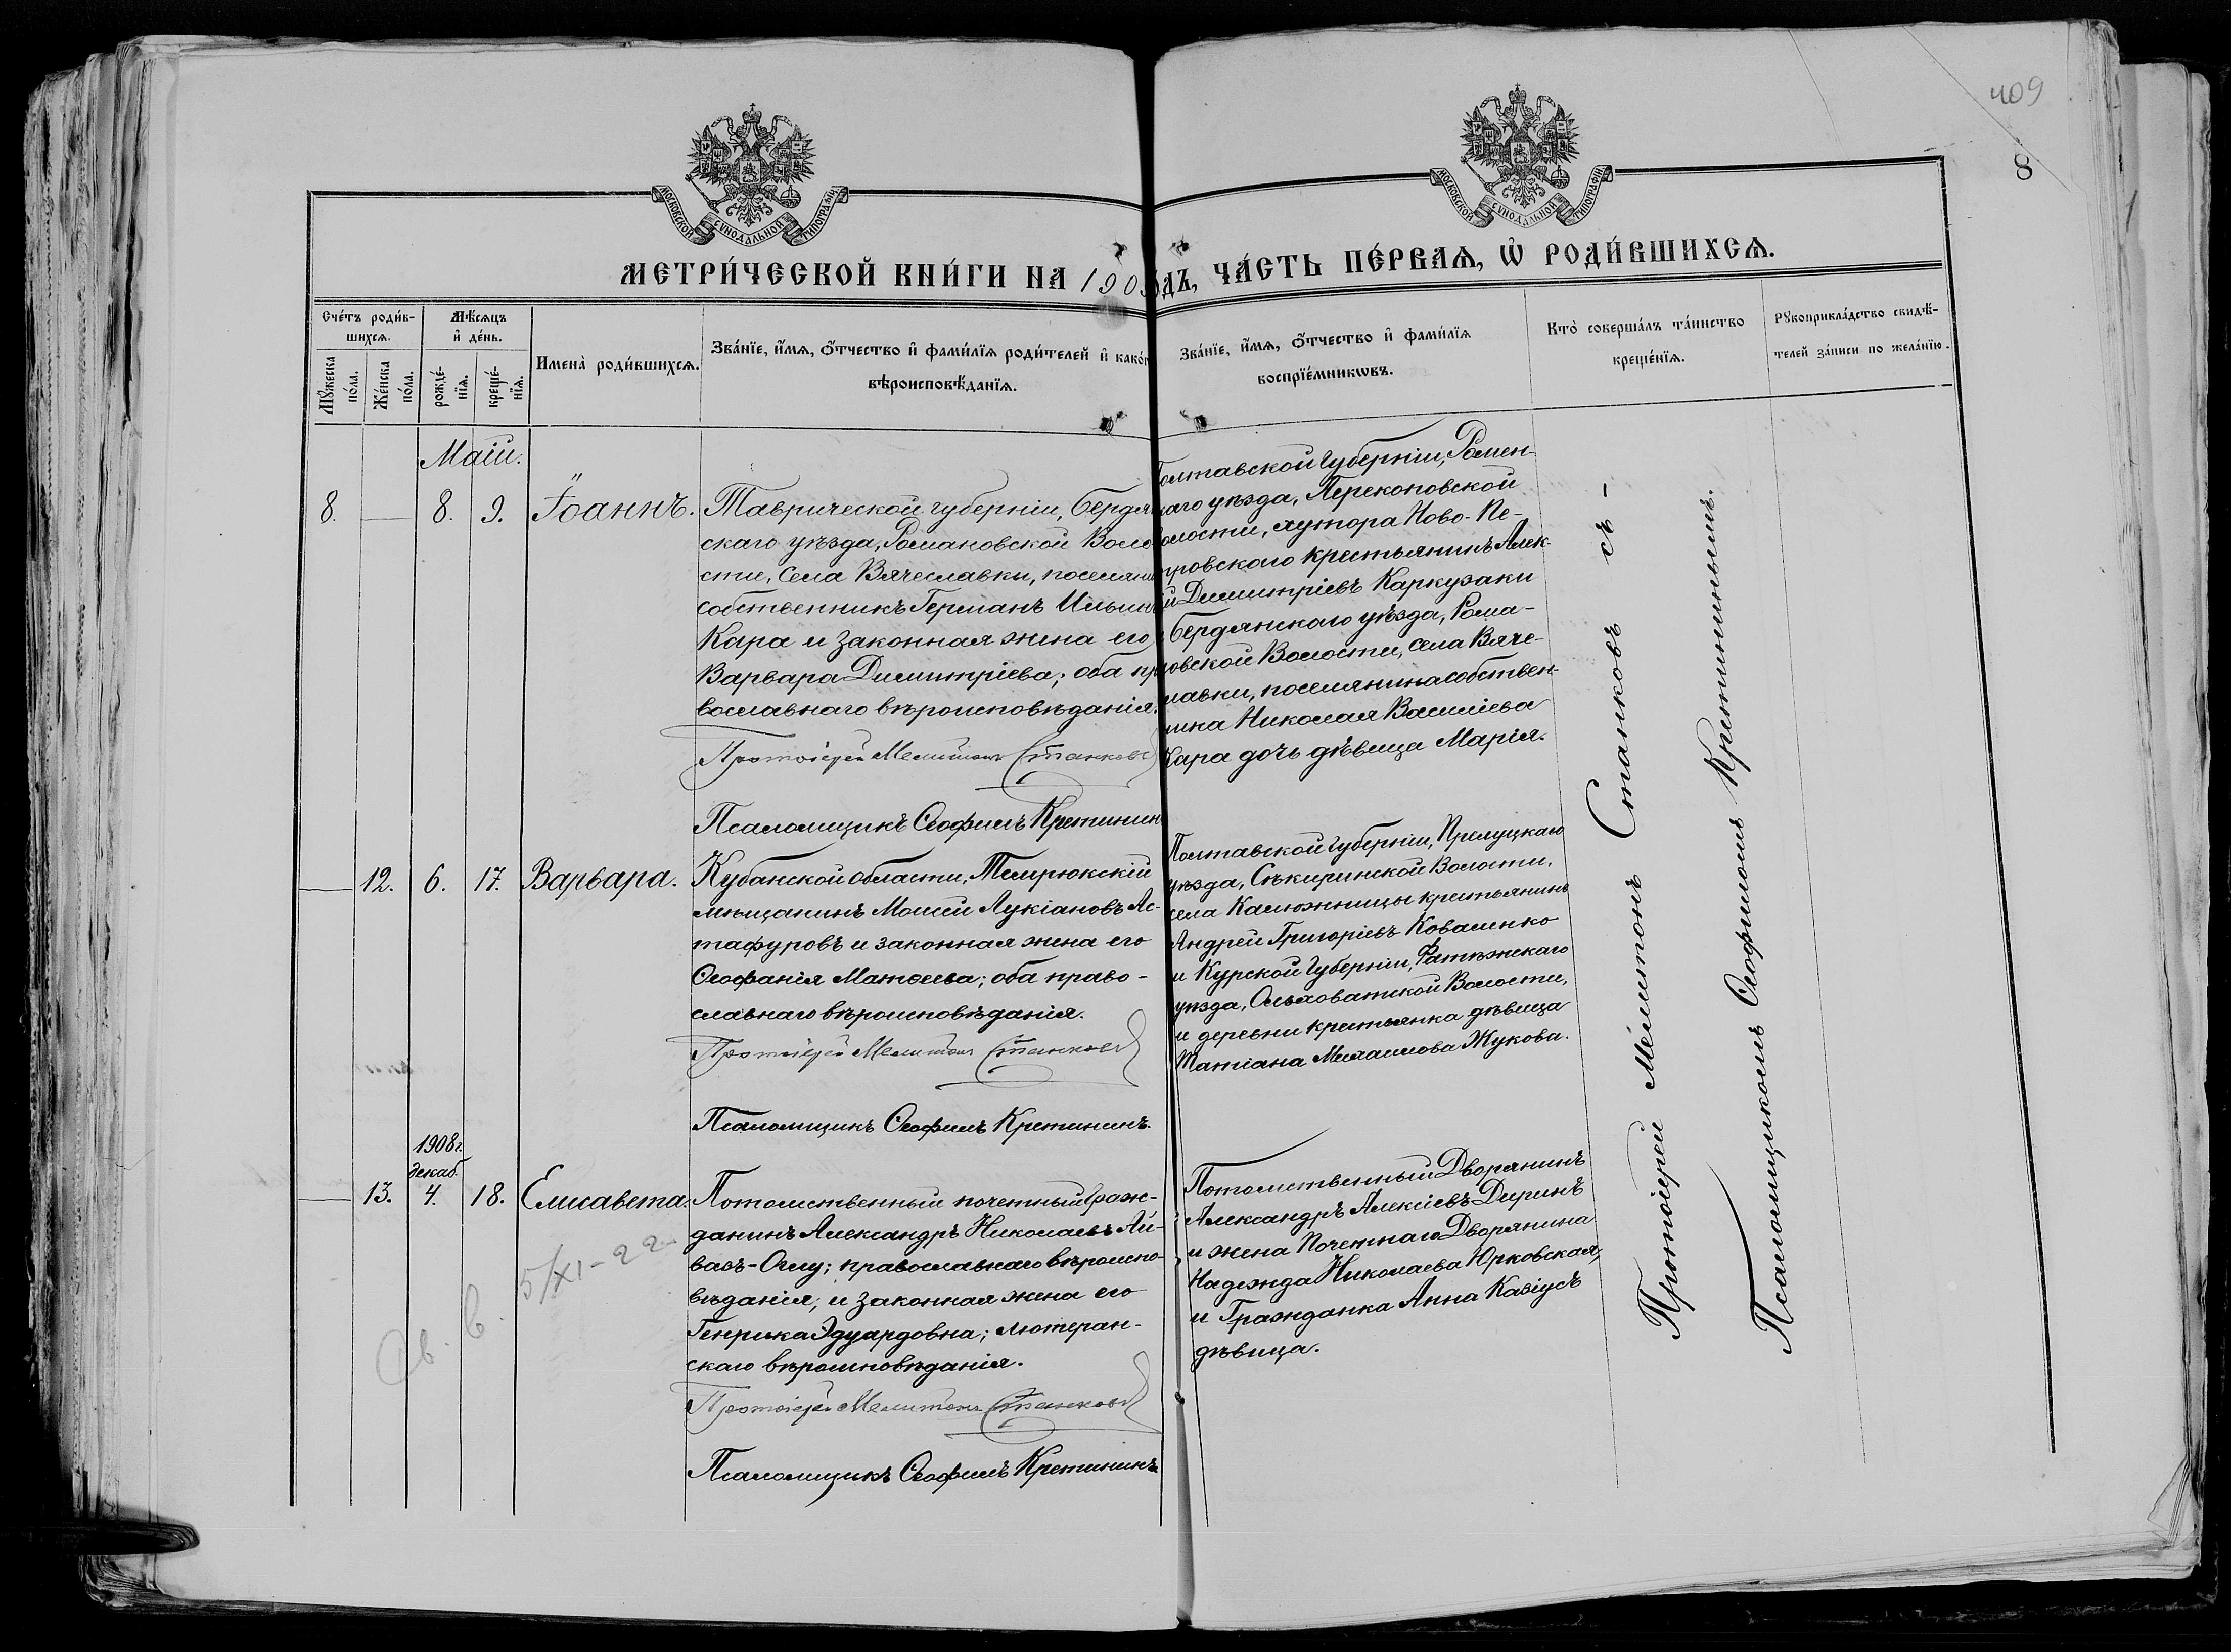 409
8
МОСКОВСКОЙ СУНОДАЛЬНОЙ ТИПОГРАФІИ
МОСКОВСКОЙ СУНОДАЛЬНОЙ ТИПОГРАФІИ
МЕТРИ́ЧЕСКОЙ КНИ́ГИ НА 190 ДЪ, ЧА́СТЬ ПЕ́РВАѦ, Ѡ҆ РОДИ́ВШИХСѦ.
Сче́тъ роди́в-
шихсѧ.
Мꙋ́жеска
по́ла.
Же́нска
по́ла.
Мѣ́сѧцъ
и҆ де́нь.
рожде́-
нїѧ.
креще́-
нїѧ.
Имена̀ роди́вшихсѧ.
Зва́нїе, и҆́мѧ, ѻ҆́тчество и҆ фами́лїѧ роди́телей и҆ како́г
вѣроисповѣ́данїѧ.
Зва́нїе, и҆́мѧ, ѻ҆́тчество и҆ фами́лїѧ
воспрїе́мникѡвъ.
Кто̀ соверша́лъ та́инство
креще́нїѧ.
Рꙋкоприкла́дство свидѣ́-
телей за́писи по жела́нїю.
Маій.
8. — 8. 9. Іоаннъ.
Таврической губерніи, Бердян
скаго уѣзда, Романовской Воло
сти, села Вячеславки, поселяни
собственникъ Германъ Ильин
Кара и законная жена его
Варвара Димитріева; оба пр
вославнаго вѣроисповѣданія.
Протоіерей Мелитонъ Станковъ
Псаломщикъ Ѳеофилъ Кретинин
Полтавской Губерніи, Ромен-
скаго уѣзда, Перекоповской
олости, хутора Ново-Пе-
тровскаго крестьянинъ Алек-
ѣй Димитріевъ Каркузаки
Бердянскаго уѣзда, Рома-
новской Волости, села Вяче-
славки, поселянина собствен-
ника Николая Василіева
Кара дочь дѣвица Марія.
— 12. 6. 17. Варвара.
Кубанской области, Темрюкскій
мѣщанинъ Моисей Лукіановъ Ас-
тафуровъ и законная жена его
Ѳеофанія Матѳеева; оба право-
славнаго вѣроисповѣданія.
Протоіерей Мелитонъ Станковъ
Псаломщикъ Ѳеофилъ Кретининъ.
Полтавской Губерніи, Прилуцкаго
уѣзда, Сѣкиринской Волости,
села Калюжницы крестьянинъ
Андрей Григоріевъ Коваленко
и Курской Губерніи, Фатѣжскаго
уѣзда, Ольховатской Волости,
и деревни крестьянка дѣвица
Татіана Михаилова Жукова.
1908 г.
декаб.
— 13. 4. 18. Елисавета.
Потомственный почетный Граж-
данинъ Александръ Николаевъ Ай-
вазъ-Оглу; православнаго вѣроиспо-
вѣданія, и законная жена его
Генрика Эдуардовна; лютеран-
скаго вѣроисповѣданія.
Протоіерей Мелитонъ Станковъ
Псаломщикъ Ѳеофилъ Кретининъ
Потомственный Дворянинъ
Александръ Алексіевъ Диринъ
и жена Почетнаго Дворянина
Надежда Николаева Юрковская,
и Гражданка Анна Кавіусъ
дѣвица.
Св. в. 5/XI-22
Протоіерей Мелитонъ Станковъ съ -
Псаломщикомъ Ѳеофиломъ Кретининымъ.